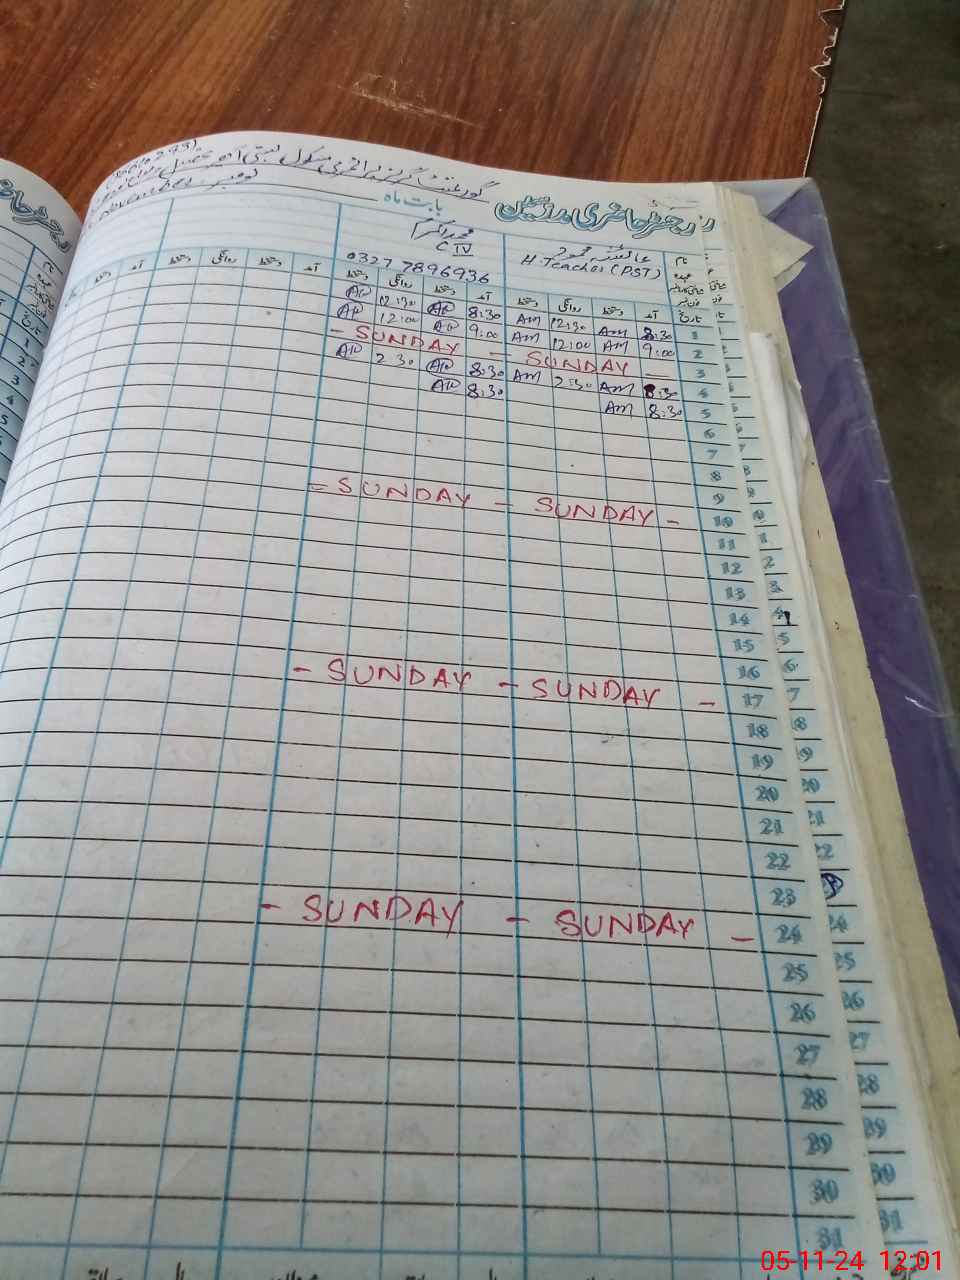 رجسٹر حاضری مدرسین
بابت ماہ نومبر November
گورنمنٹ گرلز پرائمری سکول بستی
عائشہ محمود
H.Teacher (PST)
محمد اکرم
C IV
0327 7896936
نام
عہدہ
تاریخ آمد دستخط روانگی دستخط آمد دستخط روانگی دستخط آمد دستخط روانگی دستخط آمد
1 8:30 Am 12:30 Am 8:30 AR 12:30 AR
2 9:00 Am 12:00 Am 9:00 AR 12:00 AR
3 - SUNDAY - SUNDAY -
4 8:30 Am 2:30 Am 8:30 AR 2:30 AR
5 8:30 Am 8:30 AR
6
7
8
9
10 - SUNDAY - SUNDAY -
11
12
13
14
15
16
17 - SUNDAY - SUNDAY -
18
19
20
21
22
23
24 - SUNDAY - SUNDAY -
25
26
27
28
29
30
31
05-11-24 12:01